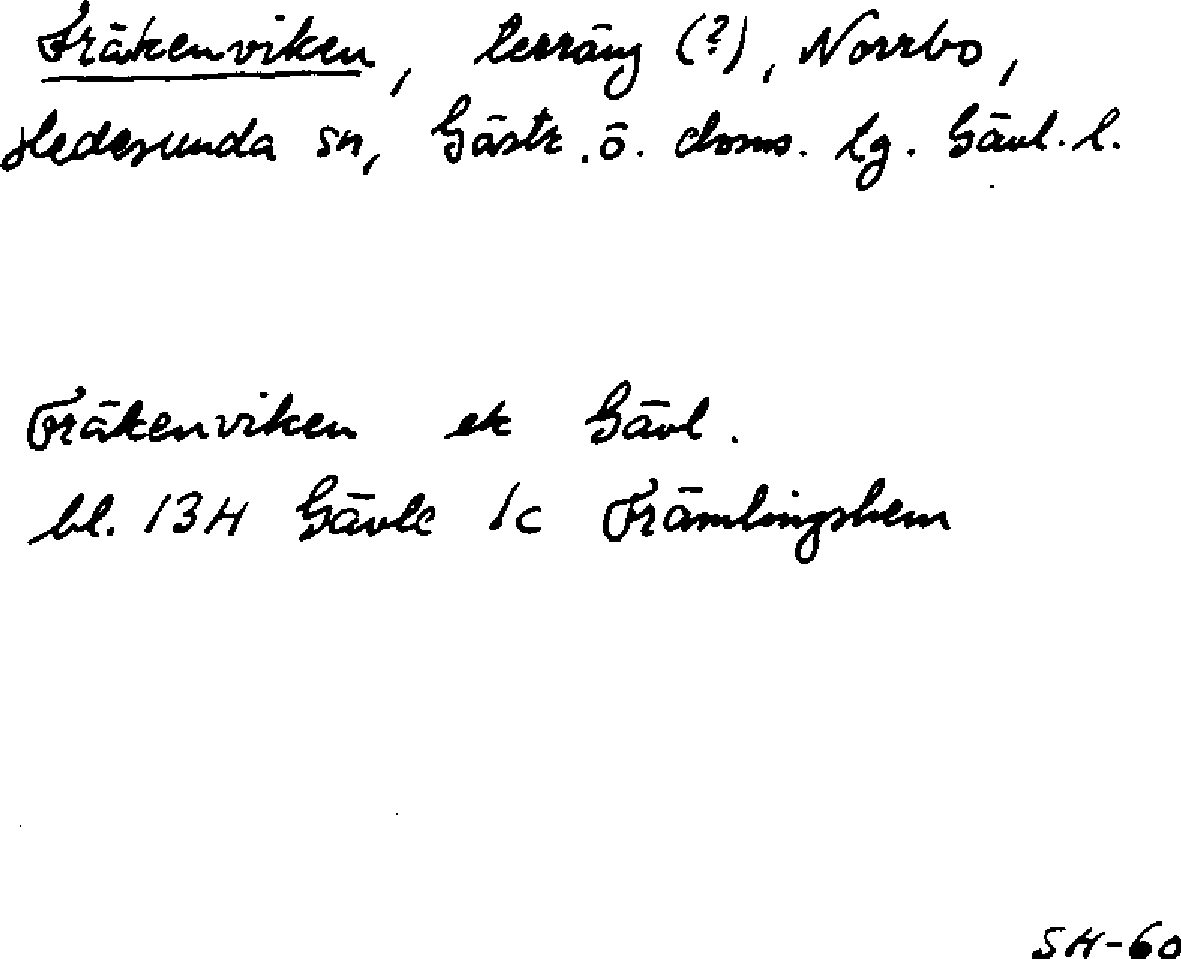 Fräkenviken, terräng (?), Norrbo,
Hedesunda sn, Gästr. ö. doms. tg. Gävl. l.
Fräkenviken ek Gävl.
bl. 13H Gävle 1c Främlingshem
SH-60